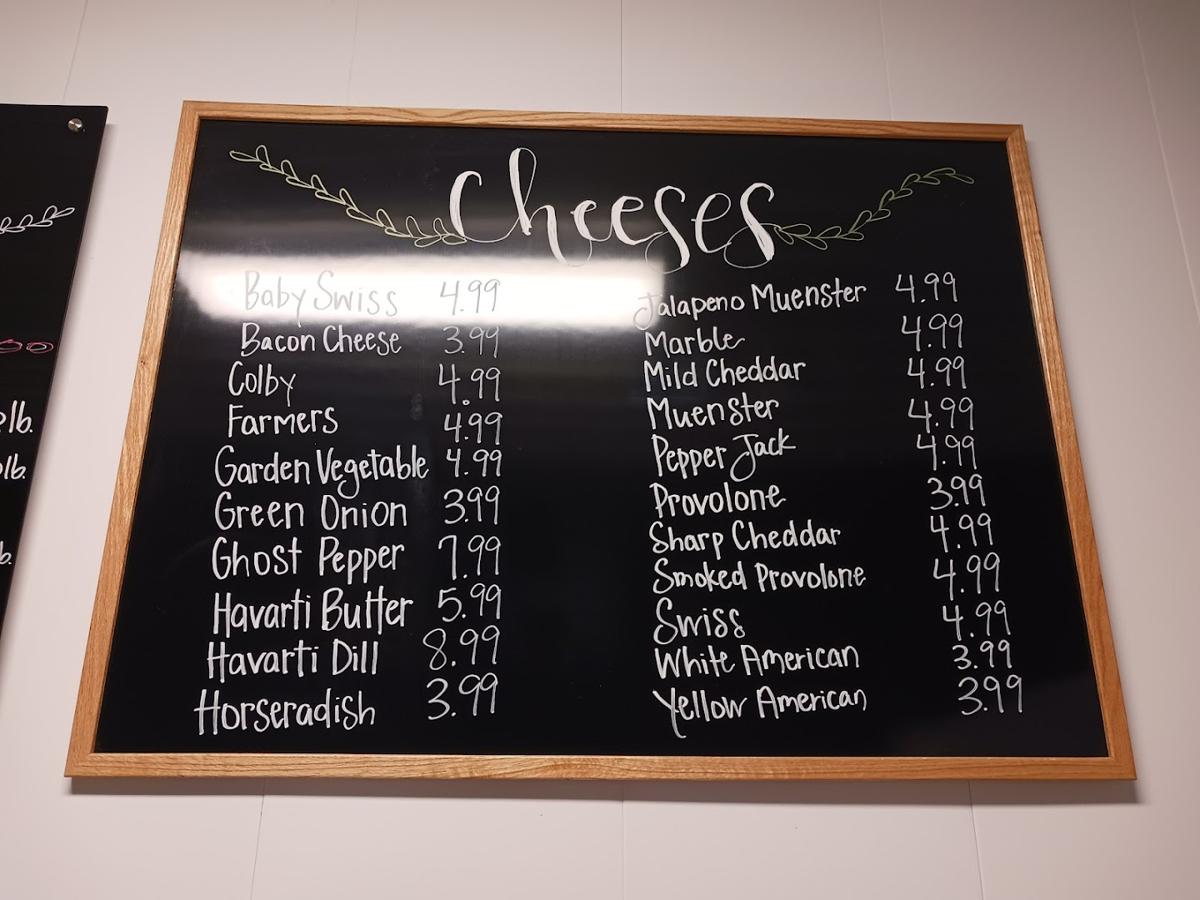 Cheeses
Baby Swiss 4.99
Bacon Cheese 3.99
Colby 4.99
Farmers 4.99
Garden Vegetable 4.99
Green Onion 3.99
Ghost Pepper 7.99
Havarti Butter 5.99
Havarti Dill 8.99
Horseradish 3.99
Jalapeno Muenster 4.99
Marble 4.99
Mild Cheddar 4.99
Muenster 4.99
Pepper Jack 4.99
Provolone 3.99
Sharp Cheddar 4.99
Smoked Provolone 4.99
Swiss 4.99
White American 3.99
Yellow American 3.99
lb.
lb.